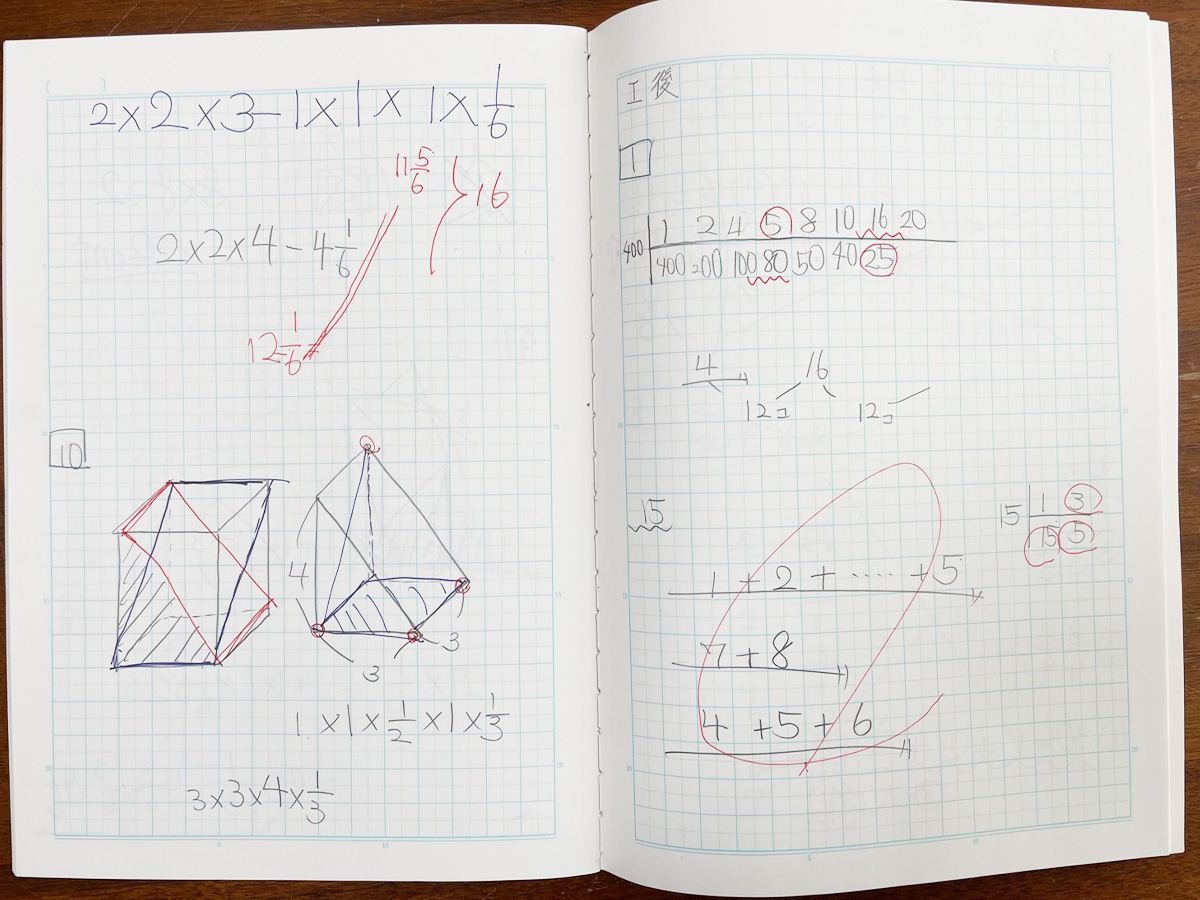 2×2×3-1×1×1×1/6
11 5/6
16
2×2×4-4 1/6
12 1/6
10
4
3
3
1×1×1/2×1×1/3
3×3×4×1/3
工後
1
400
1 2 4 5 8 10 16 20
400 200 100 80 50 40 25
4 16
12コ 12コ
15
15 1 3
15 5
1+2+……+5
7+8
4+5+6